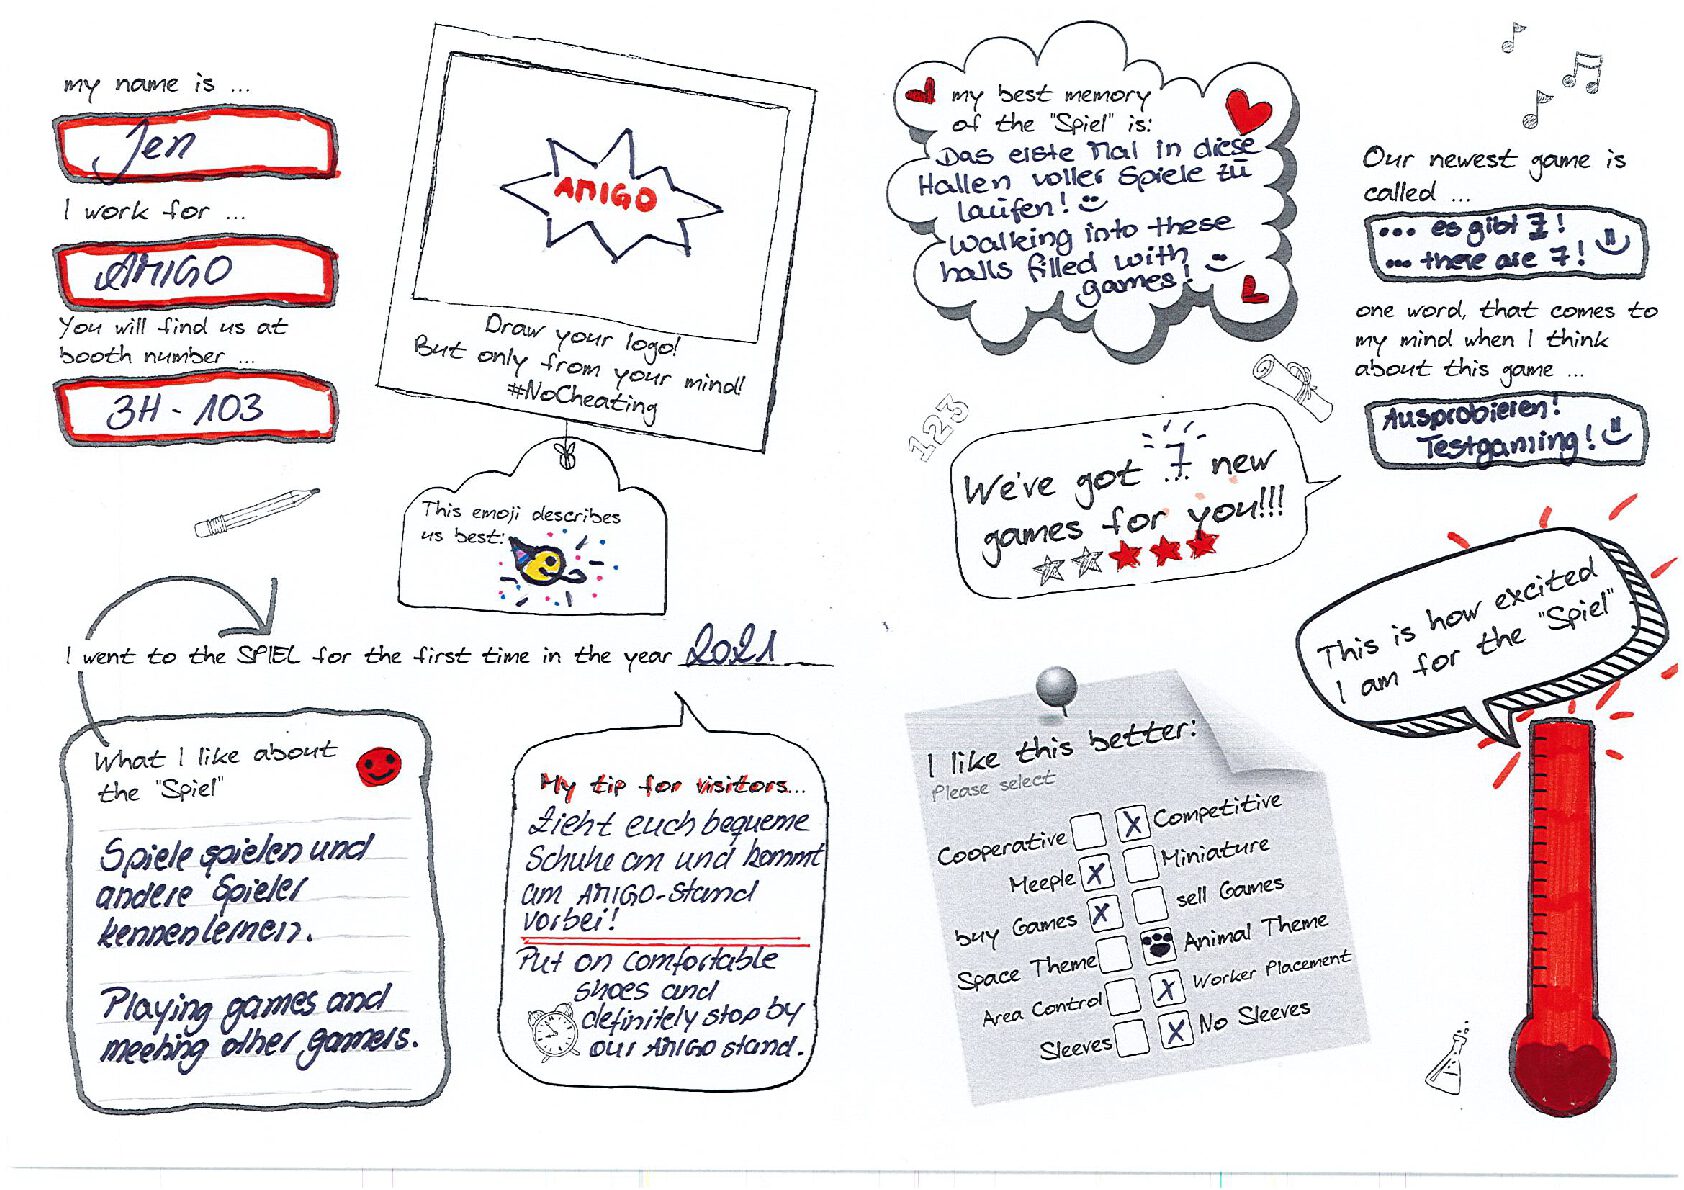 my name is ...
Jen
I work for ...
AMIGO
You will find us at
booth number ...
3H - 103
AMIGO
Draw your logo!
But only from your mind!
#NoCheating
This emoji describes
us best:
I went to the SPIEL for the first time in the year 2021
What I like about
the "Spiel"
Spiele spielen und
andere Spieler
kennenlernen.
Playing games and
meeting other gamers.
My tip for visitors...
Zieht euch bequeme
Schuhe an und kommt
am AMIGO-Stand
vorbei!
Put on comfortable
shoes and
definitely stop by
our AMIGO stand.
my best memory
of the "Spiel" is:
Das erste Mal in diese
Hallen voller Spiele zu
laufen!
Walking into these
halls filled with
games!
Our newest game is
called ...
... es gibt 7!
... there are 7!
one word, that comes to
my mind when I think
about this game ...
Ausprobieren!
Testgaming!
123
We've got 7 new
games for you!!!
This is how excited
I am for the "Spiel"
I like this better:
Please select
Cooperative X Competitive
Meeple X Miniature
buy Games X sell Games
Space Theme Animal Theme
Area Control X Worker Placement
Sleeves X No Sleeves